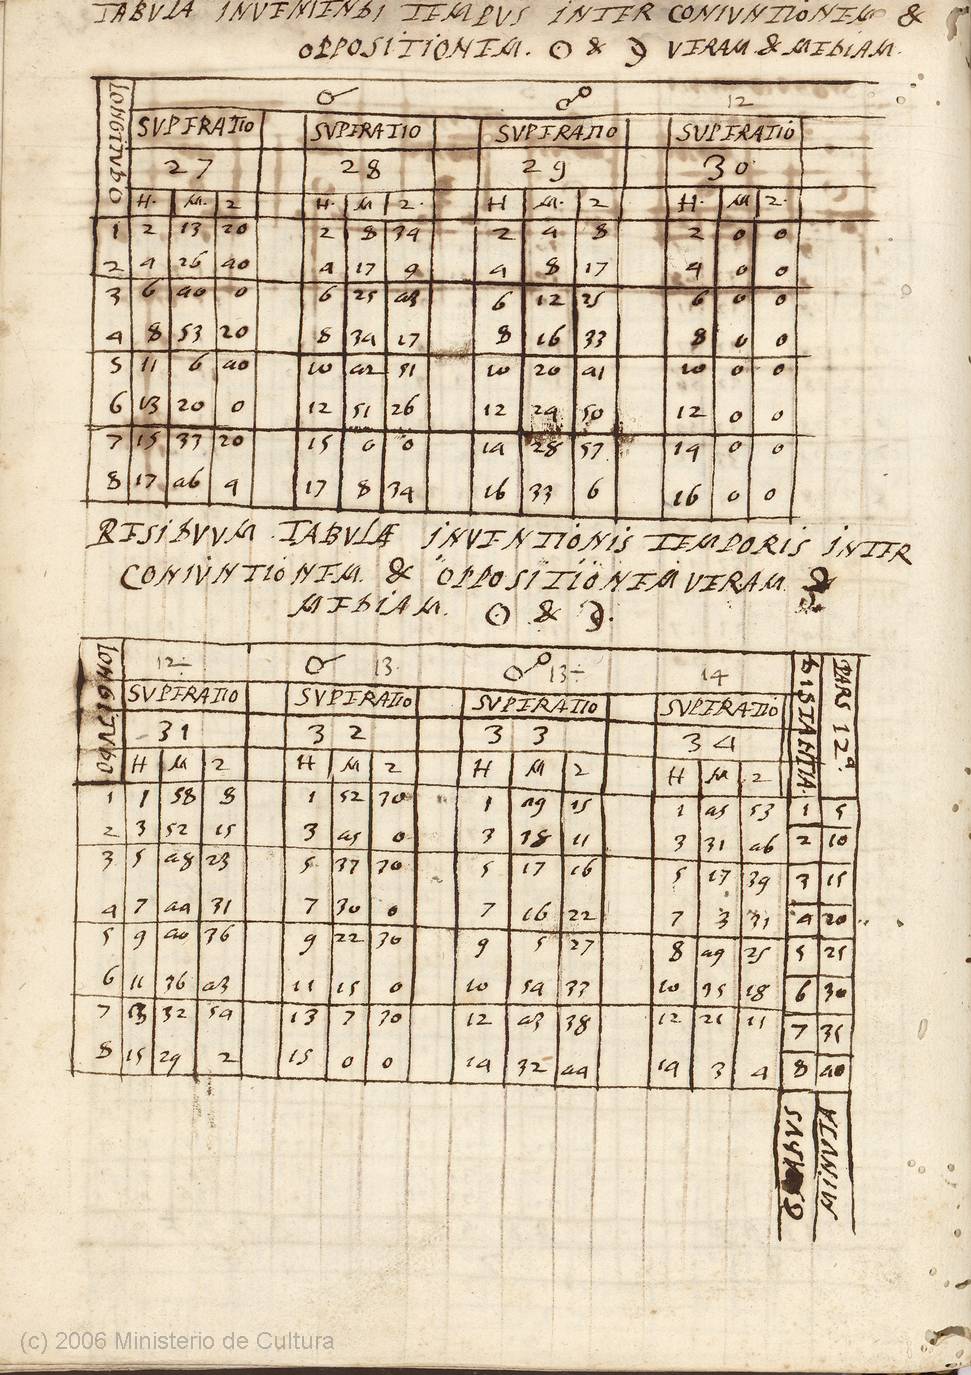 TABULA INVENIENDI TEMPUS INTER CONIVNTIONEM &
OPPOSITIONEM. ☉ & ☽ VERAM & MEDIAM.
LONGITVDO
☌ ☍ 12
SVPERATIO SVPERATIO SVPERATIO SVPERATIO
27 28 29 30
H. M. 2 H. M 2. H M. 2 H. M 2.
1 2 13 20 2 8 34 2 4 8 2 0 0
2 4 26 40 4 17 9 4 8 17 4 0 0
3 6 40 0 6 25 43 6 12 25 6 0 0
4 8 53 20 8 34 17 8 16 33 8 0 0
5 11 6 40 10 42 51 10 20 41 10 0 0
6 13 20 0 12 51 26 12 24 50 12 0 0
7 15 33 20 15 0 0 14 28 57 14 0 0
8 17 46 4 17 8 34 16 33 6 16 0 0
RESIDVVM TABVLÆ INVENTIONIS TEMPORIS INTER
CONIVNTIONEM. & OPPOSITIONEM VERAM &
MEDIAM. ☉ & ☽.
LONGITVDO
12÷ ☌ 13 ☍ 13÷ 14
DISTANTIA. PARS 12ª.
SVPERATIO SVPERATIO SVPERATIO SVPERATIO
31 32 33 34
H M 2 H M 2 H M 2 H M 2
1 1 58 8 1 52 30 1 49 15 1 45 53 1 5
2 3 52 15 3 45 0 3 38 11 3 31 46 2 10
3 5 48 23 5 37 30 5 17 16 5 17 39 3 15
4 7 44 31 7 30 0 7 16 22 7 3 31 4 20
5 9 40 36 9 22 30 9 5 27 8 49 25 5 25
6 11 36 43 11 15 0 10 54 33 10 35 18 6 30
7 13 32 54 13 7 30 12 43 38 12 21 11 7 35
8 15 29 2 15 0 0 14 32 44 14 3 4 8 40
MINVTA
(c) 2006 Ministerio de Cultura